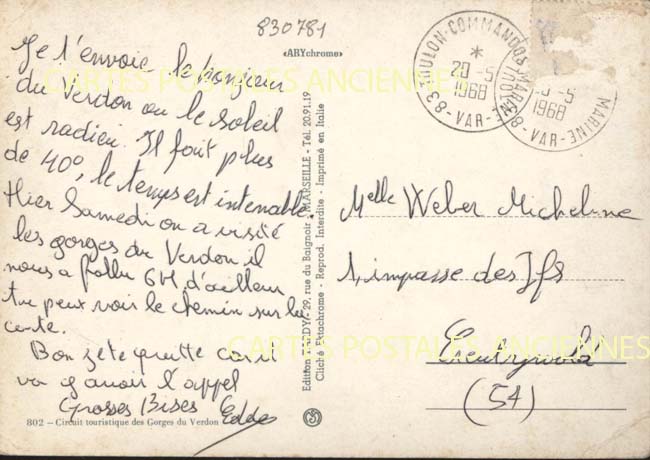 830781
«ARYchrome»
Je t'envoie le bonjour
du Verdon ou le soleil
est radieu. Il fait plus
de 40°, le temps est intenable.
Hier Samedi on a visité
les gorges du Verdon il
nous a fallu 6H, d'ailleur
tu peux voir le chemin sur la
carte.
Bon je te quitte car il
va y avoir l'appel
Grosses Bises Eddy
802 - Circuit touristique des Gorges du Verdon
29, rue du Baignoir - MARSEILLE - Tél. 20.91.19
Cliché Ektachrome - Reprod. Interdite - Imprimé en Italie
83-TOULON-COMMANDOS MARINE
20-5
1968
-VAR-
MARINE
-5
1968
-VAR-
Melle Weber Micheline
1, impasse des Ifs
(54)
CARTES POSTALES ANCIENNES
CARTES POSTALES ANCIENNES